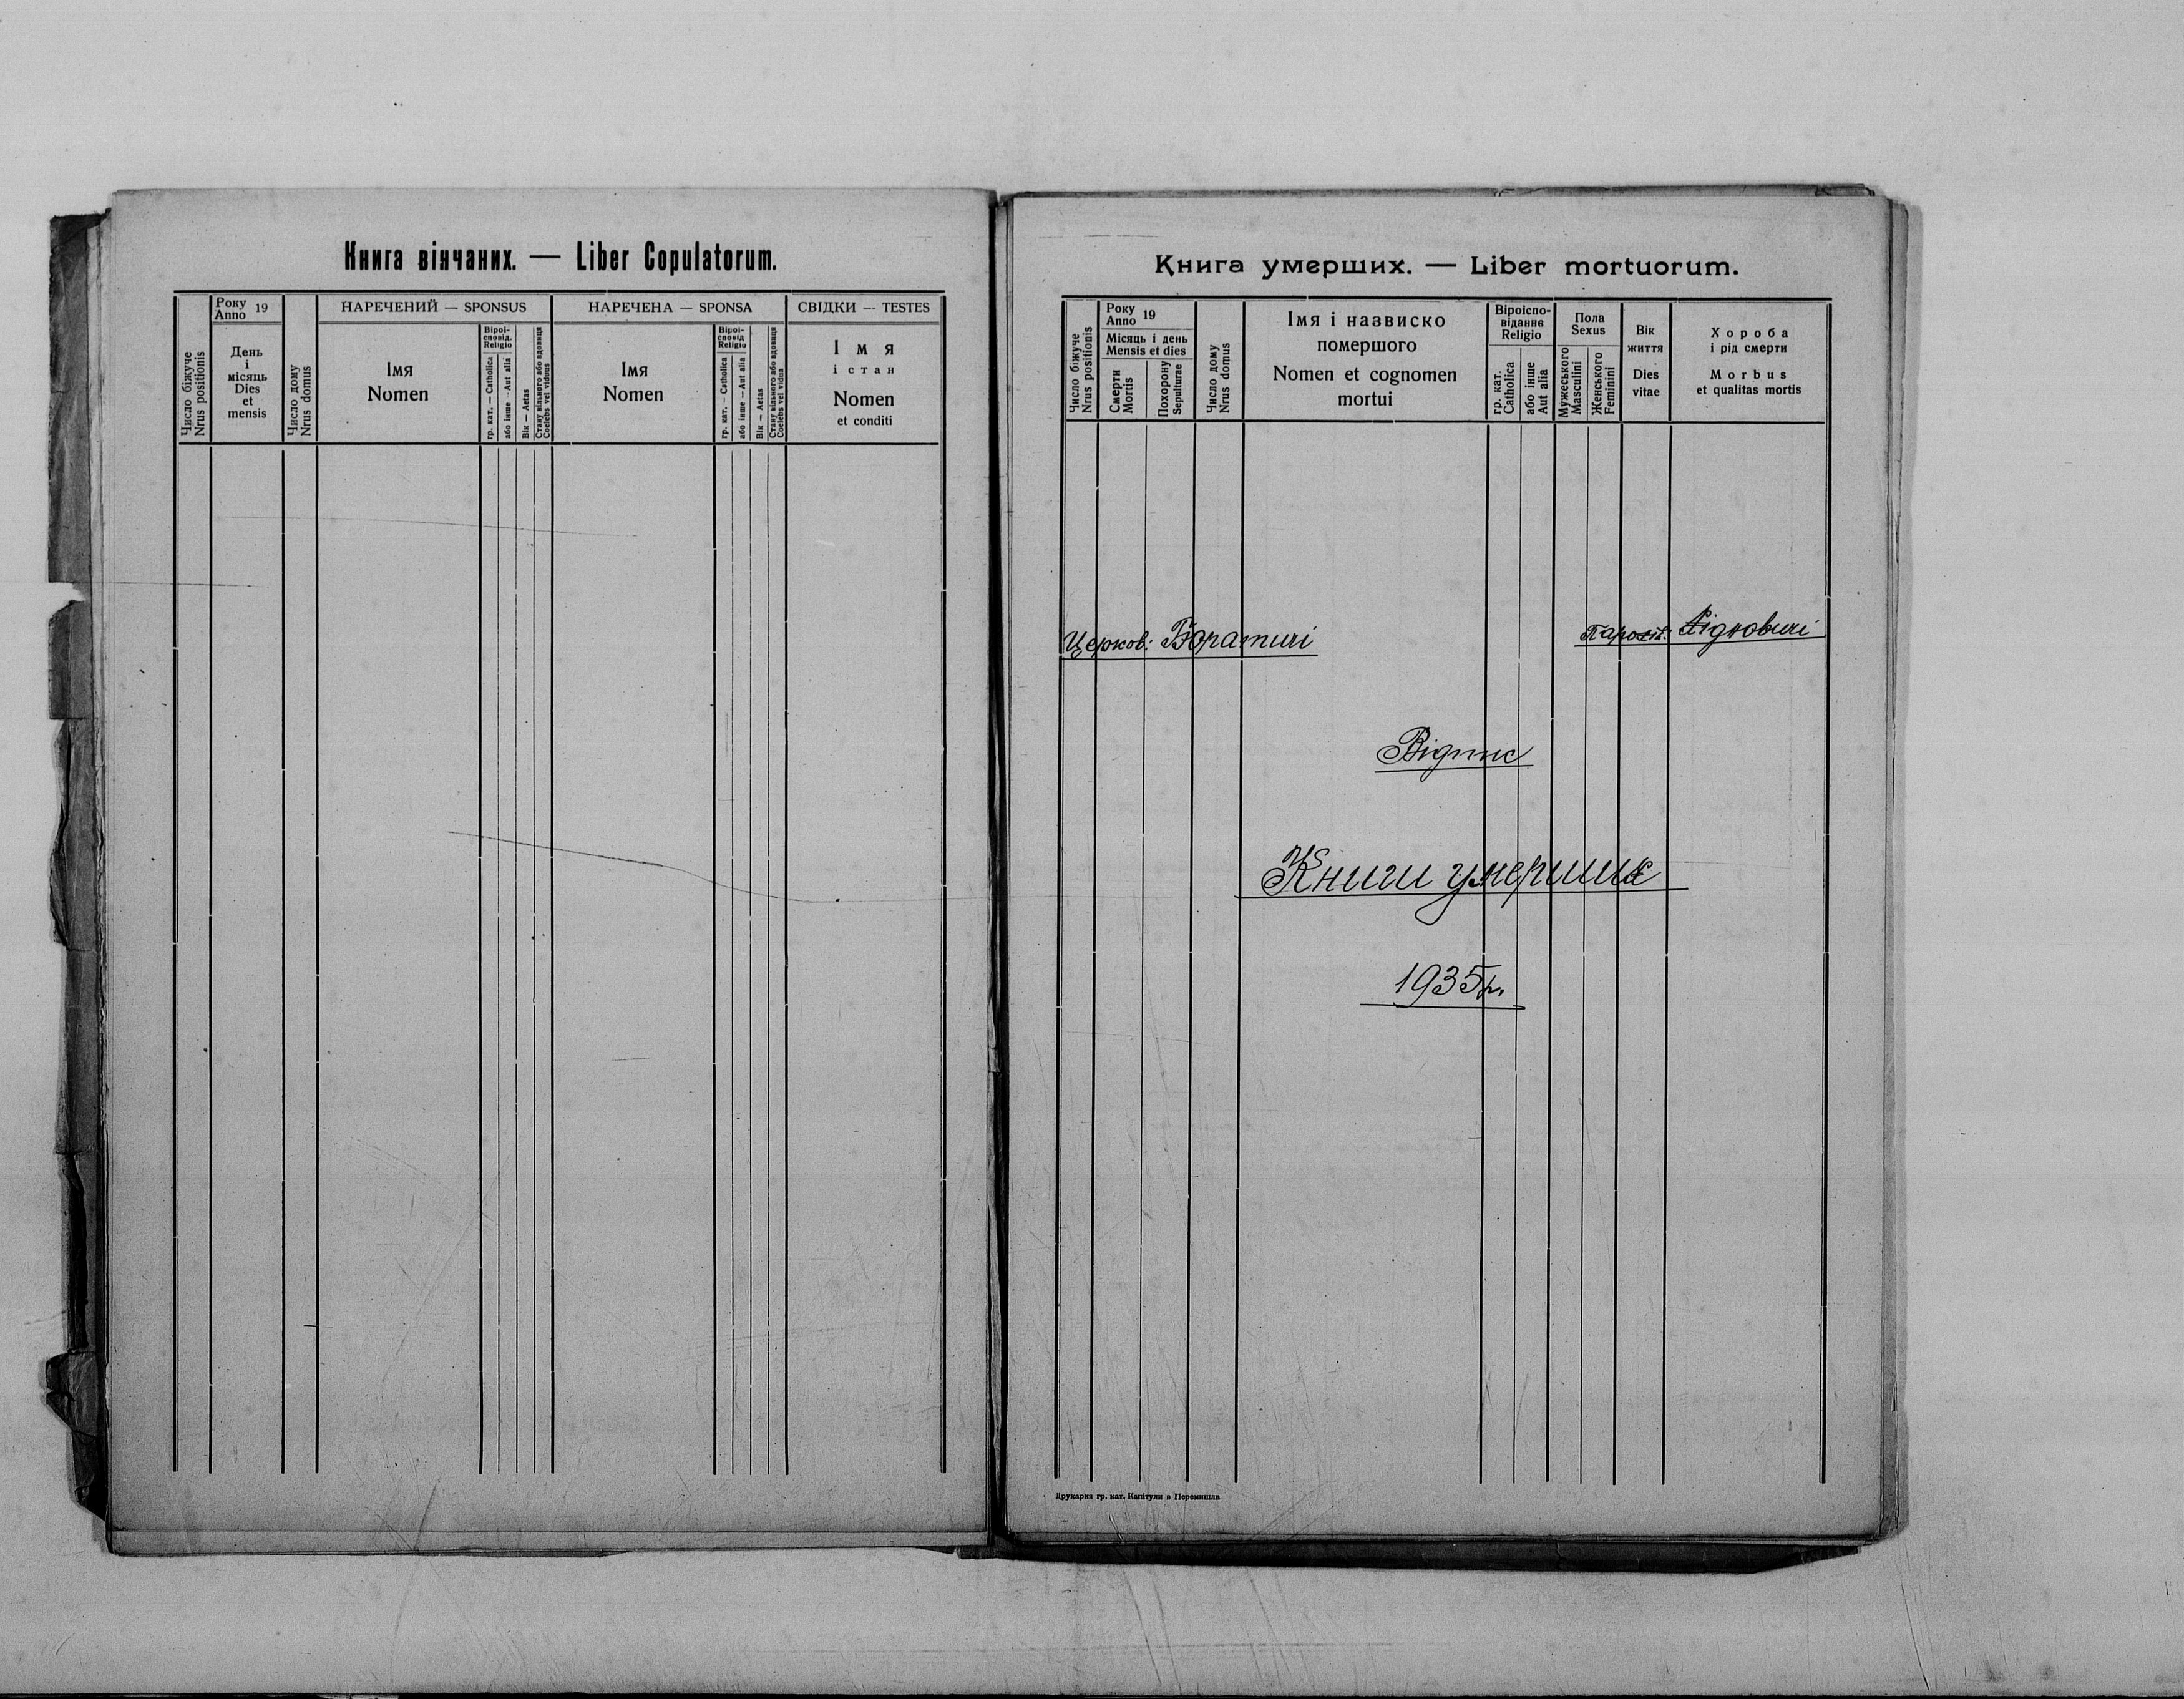 Книга вінчаних. — Liber Copulatorum.
Число біжуче
Nrus positionis
Року
Anno 19
День
і
місяць
Dies
et
mensis
Число дому
Nrus domus
НАРЕЧЕНИЙ — SPONSUS
Імя
Nomen
Віроі-
сповід.
Religio
гр. кат. — Catholica
або інше - Aut alia
Вік — Aetas
Стану вільного або вдовиця
Coelebs vel viduus
НАРЕЧЕНА — SPONSA
Імя
Nomen
Віроі-
сповід
Religio
гр. кат. — Catholica
або інше — Aut alia
Вік — Aetas
Стану вільного або вдовиця
Coelebs vel vidua
СВІДКИ — TESTES
Імя
і стан
Nomen
et conditi
Книга умерших. — Liber mortuorum.
Число біжуче
Nrus positionis
Року
Anno 19
Місяць і день
Mensis et dies
Смерти
Mortis
Похорону
Sepulturae
Число дому
Nrus domus
Імя і назвиско
помершого
Nomen et cognomen
mortui
Віроіспо-
відання
Religio
гр. кат.
Catholica
або інше
Aut alia
Пола
Sexus
Мужеського
Masculini
Женського
Feminini
Вік
життя
Dies
vitae
Хороба
і рід смерти
Morbus
et qualitas mortis
Церков: Боратичі
Парохія:
Відпис
Книги умерших
1935 р.
Друкарня гр. кат. Капітули в Перемишлі